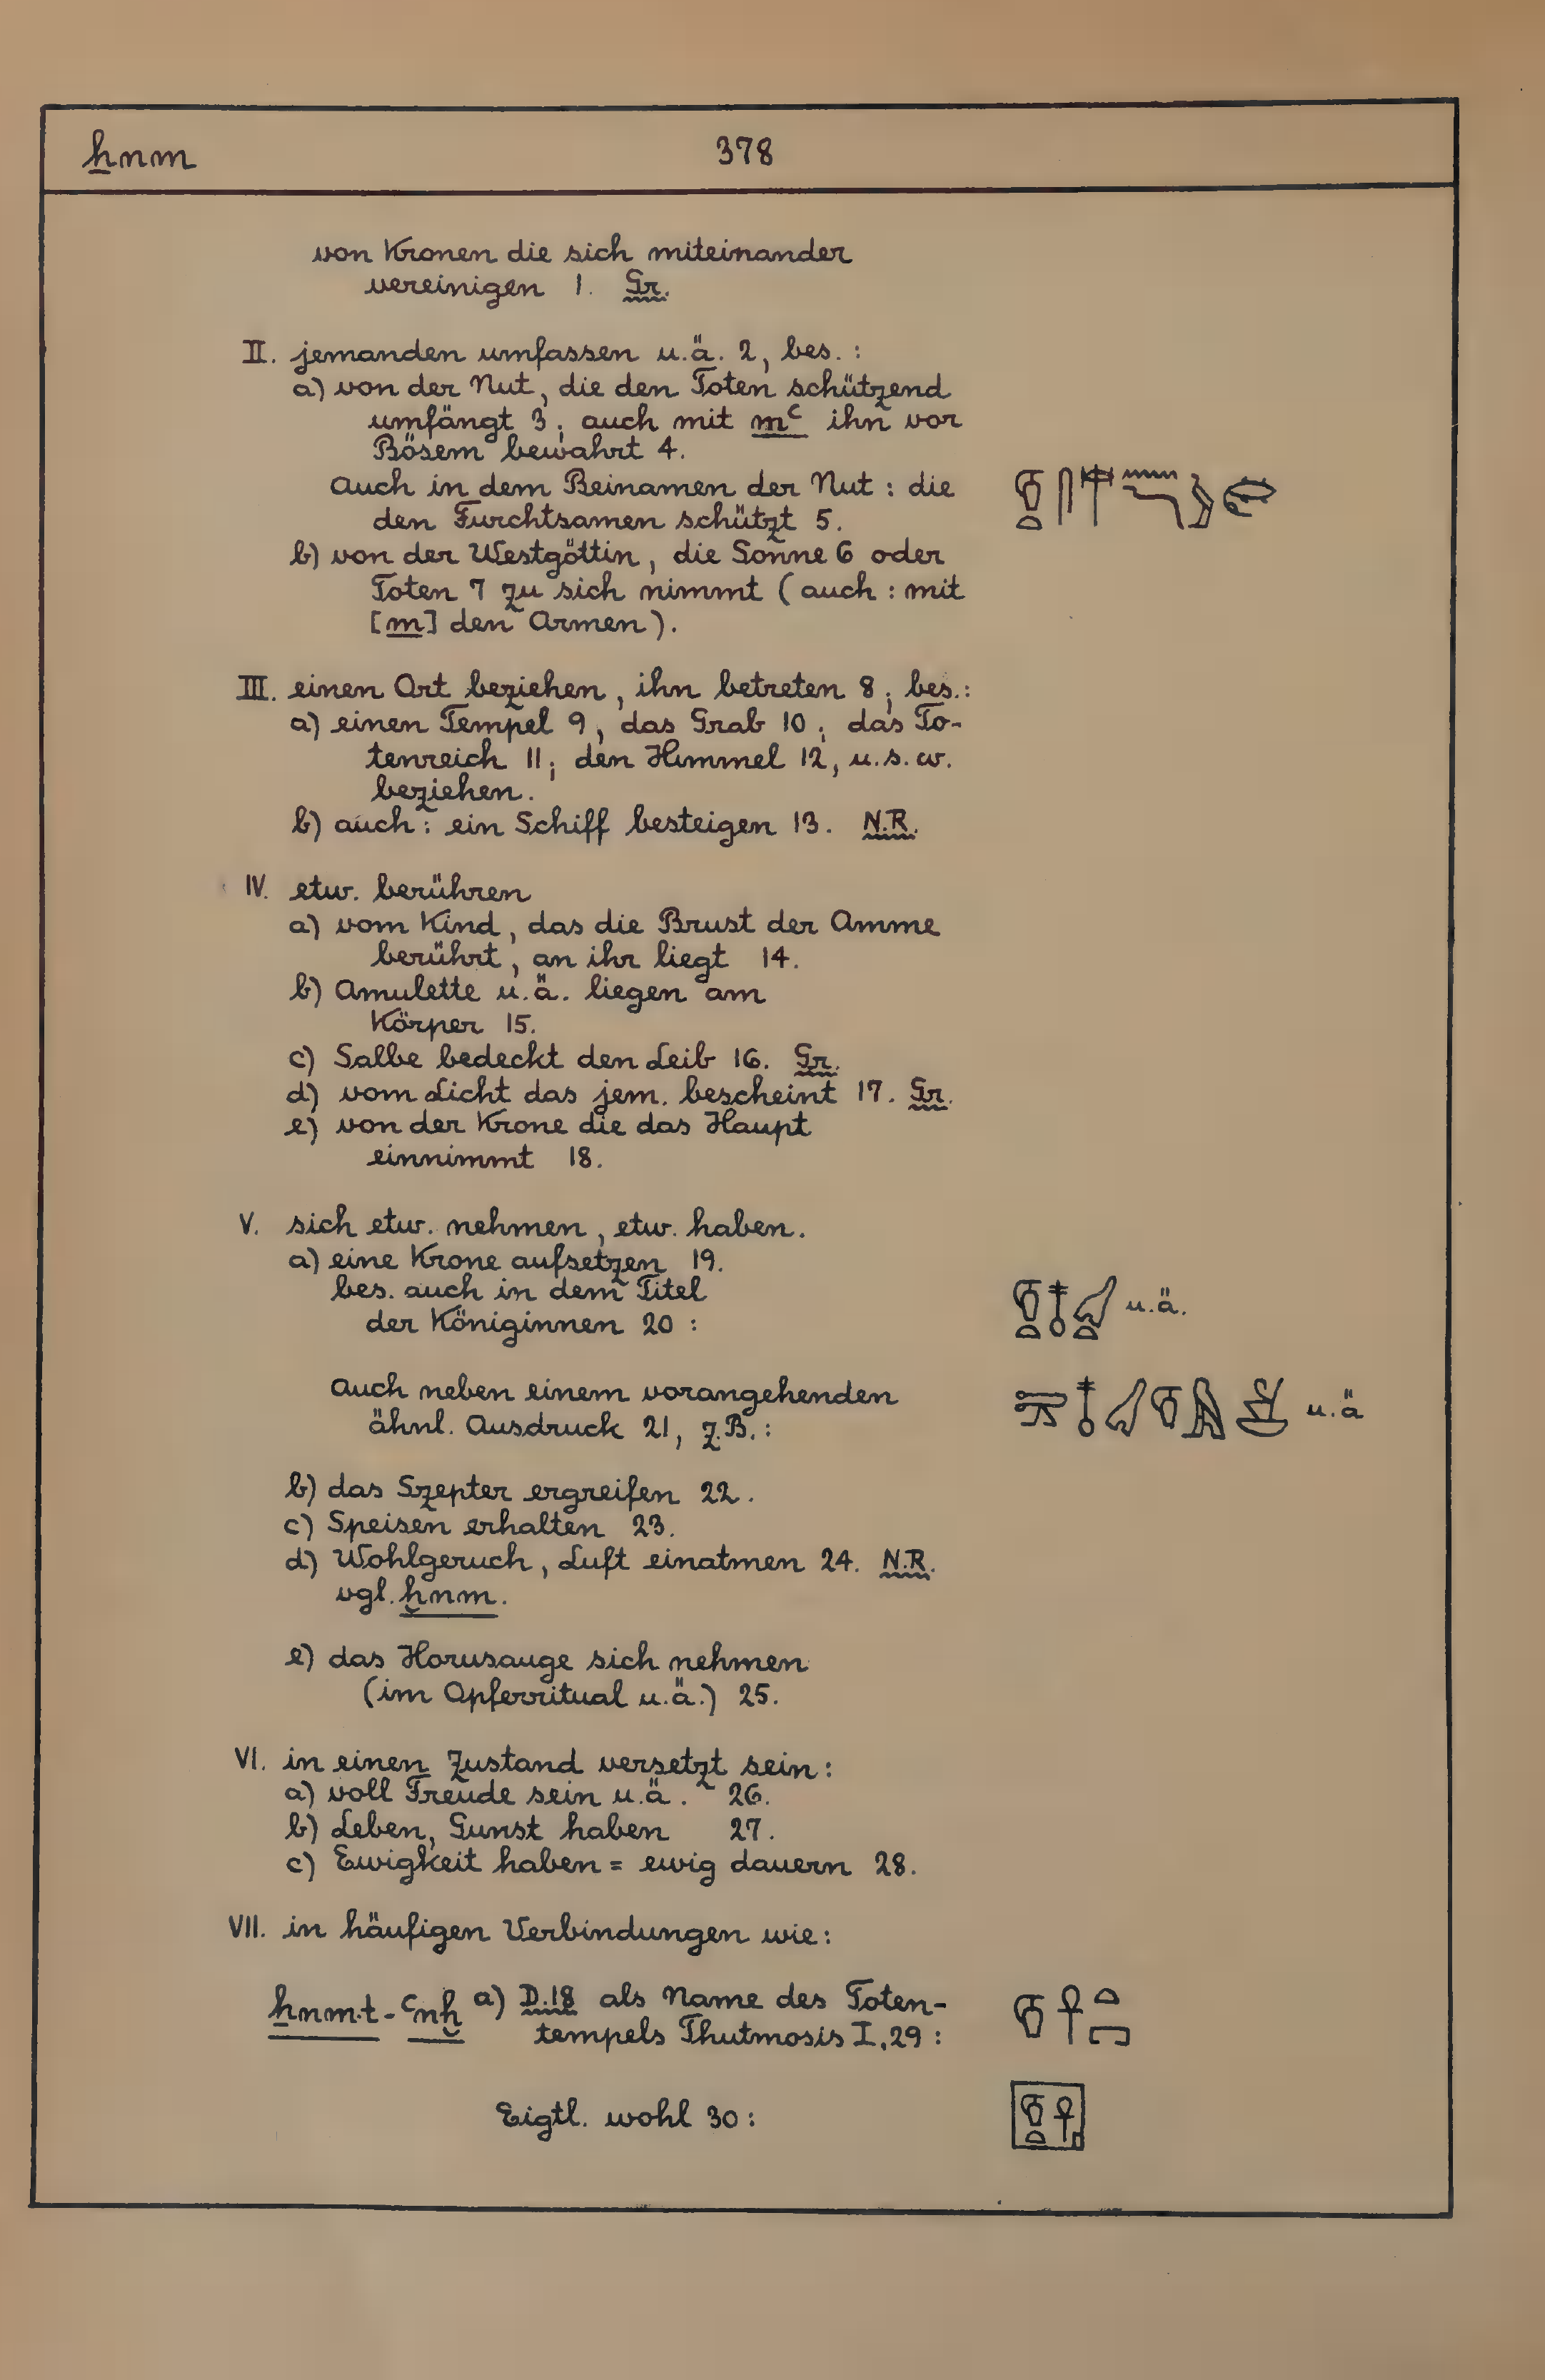 ẖnm 378
von Kronen die sich miteinander
vereinigen 1. Gr.
II. jemanden umfassen u.ä. 2, bes.:
a) von der Nut, die den Toten schützend
umfängt 3; auch mit mꜥ ihn vor
Bösem bewahrt 4.
Auch in dem Beinamen der Nut: die
den Furchtsamen schützt 5.
b) von der Westgöttin, die Sonne 6 oder
Toten 7 zu sich nimmt (auch: mit
[m] den Armen).
III. einen Ort beziehen, ihn betreten 8; bes.:
a) einen Tempel 9, das Grab 10; das To-
tenreich 11; den Himmel 12, u.s.w.
beziehen.
b) auch: ein Schiff besteigen 13. N.R.
IV. etw. berühren
a) vom Kind, das die Brust der Amme
berührt, an ihr liegt 14.
b) Amulette u.ä. liegen am
Körper 15.
c) Salbe bedeckt den Leib 16. Gr.
d) vom Licht das jem. bescheint 17. Gr.
e) von der Krone die das Haupt
einnimmt 18.
V. sich etw. nehmen, etw. haben.
a) eine Krone aufsetzen 19.
bes. auch in dem Titel
der Königinnen 20: u.ä.
Auch neben einem vorangehenden
ähnl. Ausdruck 21, z.B.: u.ä
b) das Szepter ergreifen 22.
c) Speisen erhalten 23.
d) Wohlgeruch, Luft einatmen 24. N.R.
vgl. ḫnm.
e) das Horusauge sich nehmen
(im Opferritual u.ä.) 25.
VI. in einen Zustand versetzt sein:
a) voll Freude sein u.ä. 26.
b) Leben, Gunst haben 27.
c) Ewigkeit haben = ewig dauern 28.
VII. in häufigen Verbindungen wie:
ẖnm.t-ꜥnḫ a) D.18 als Name des Toten-
tempels Thutmosis I, 29:
Eigtl. wohl 30: